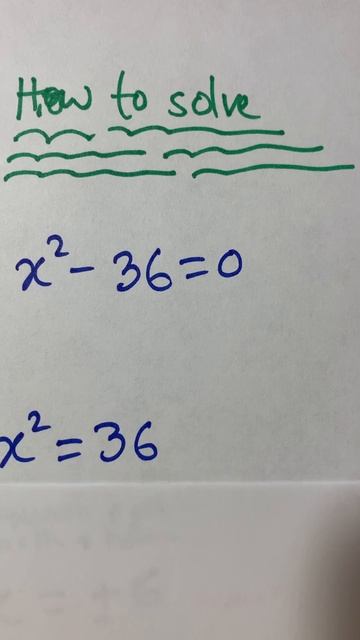 How to solve
x² - 36 = 0
x² = 36